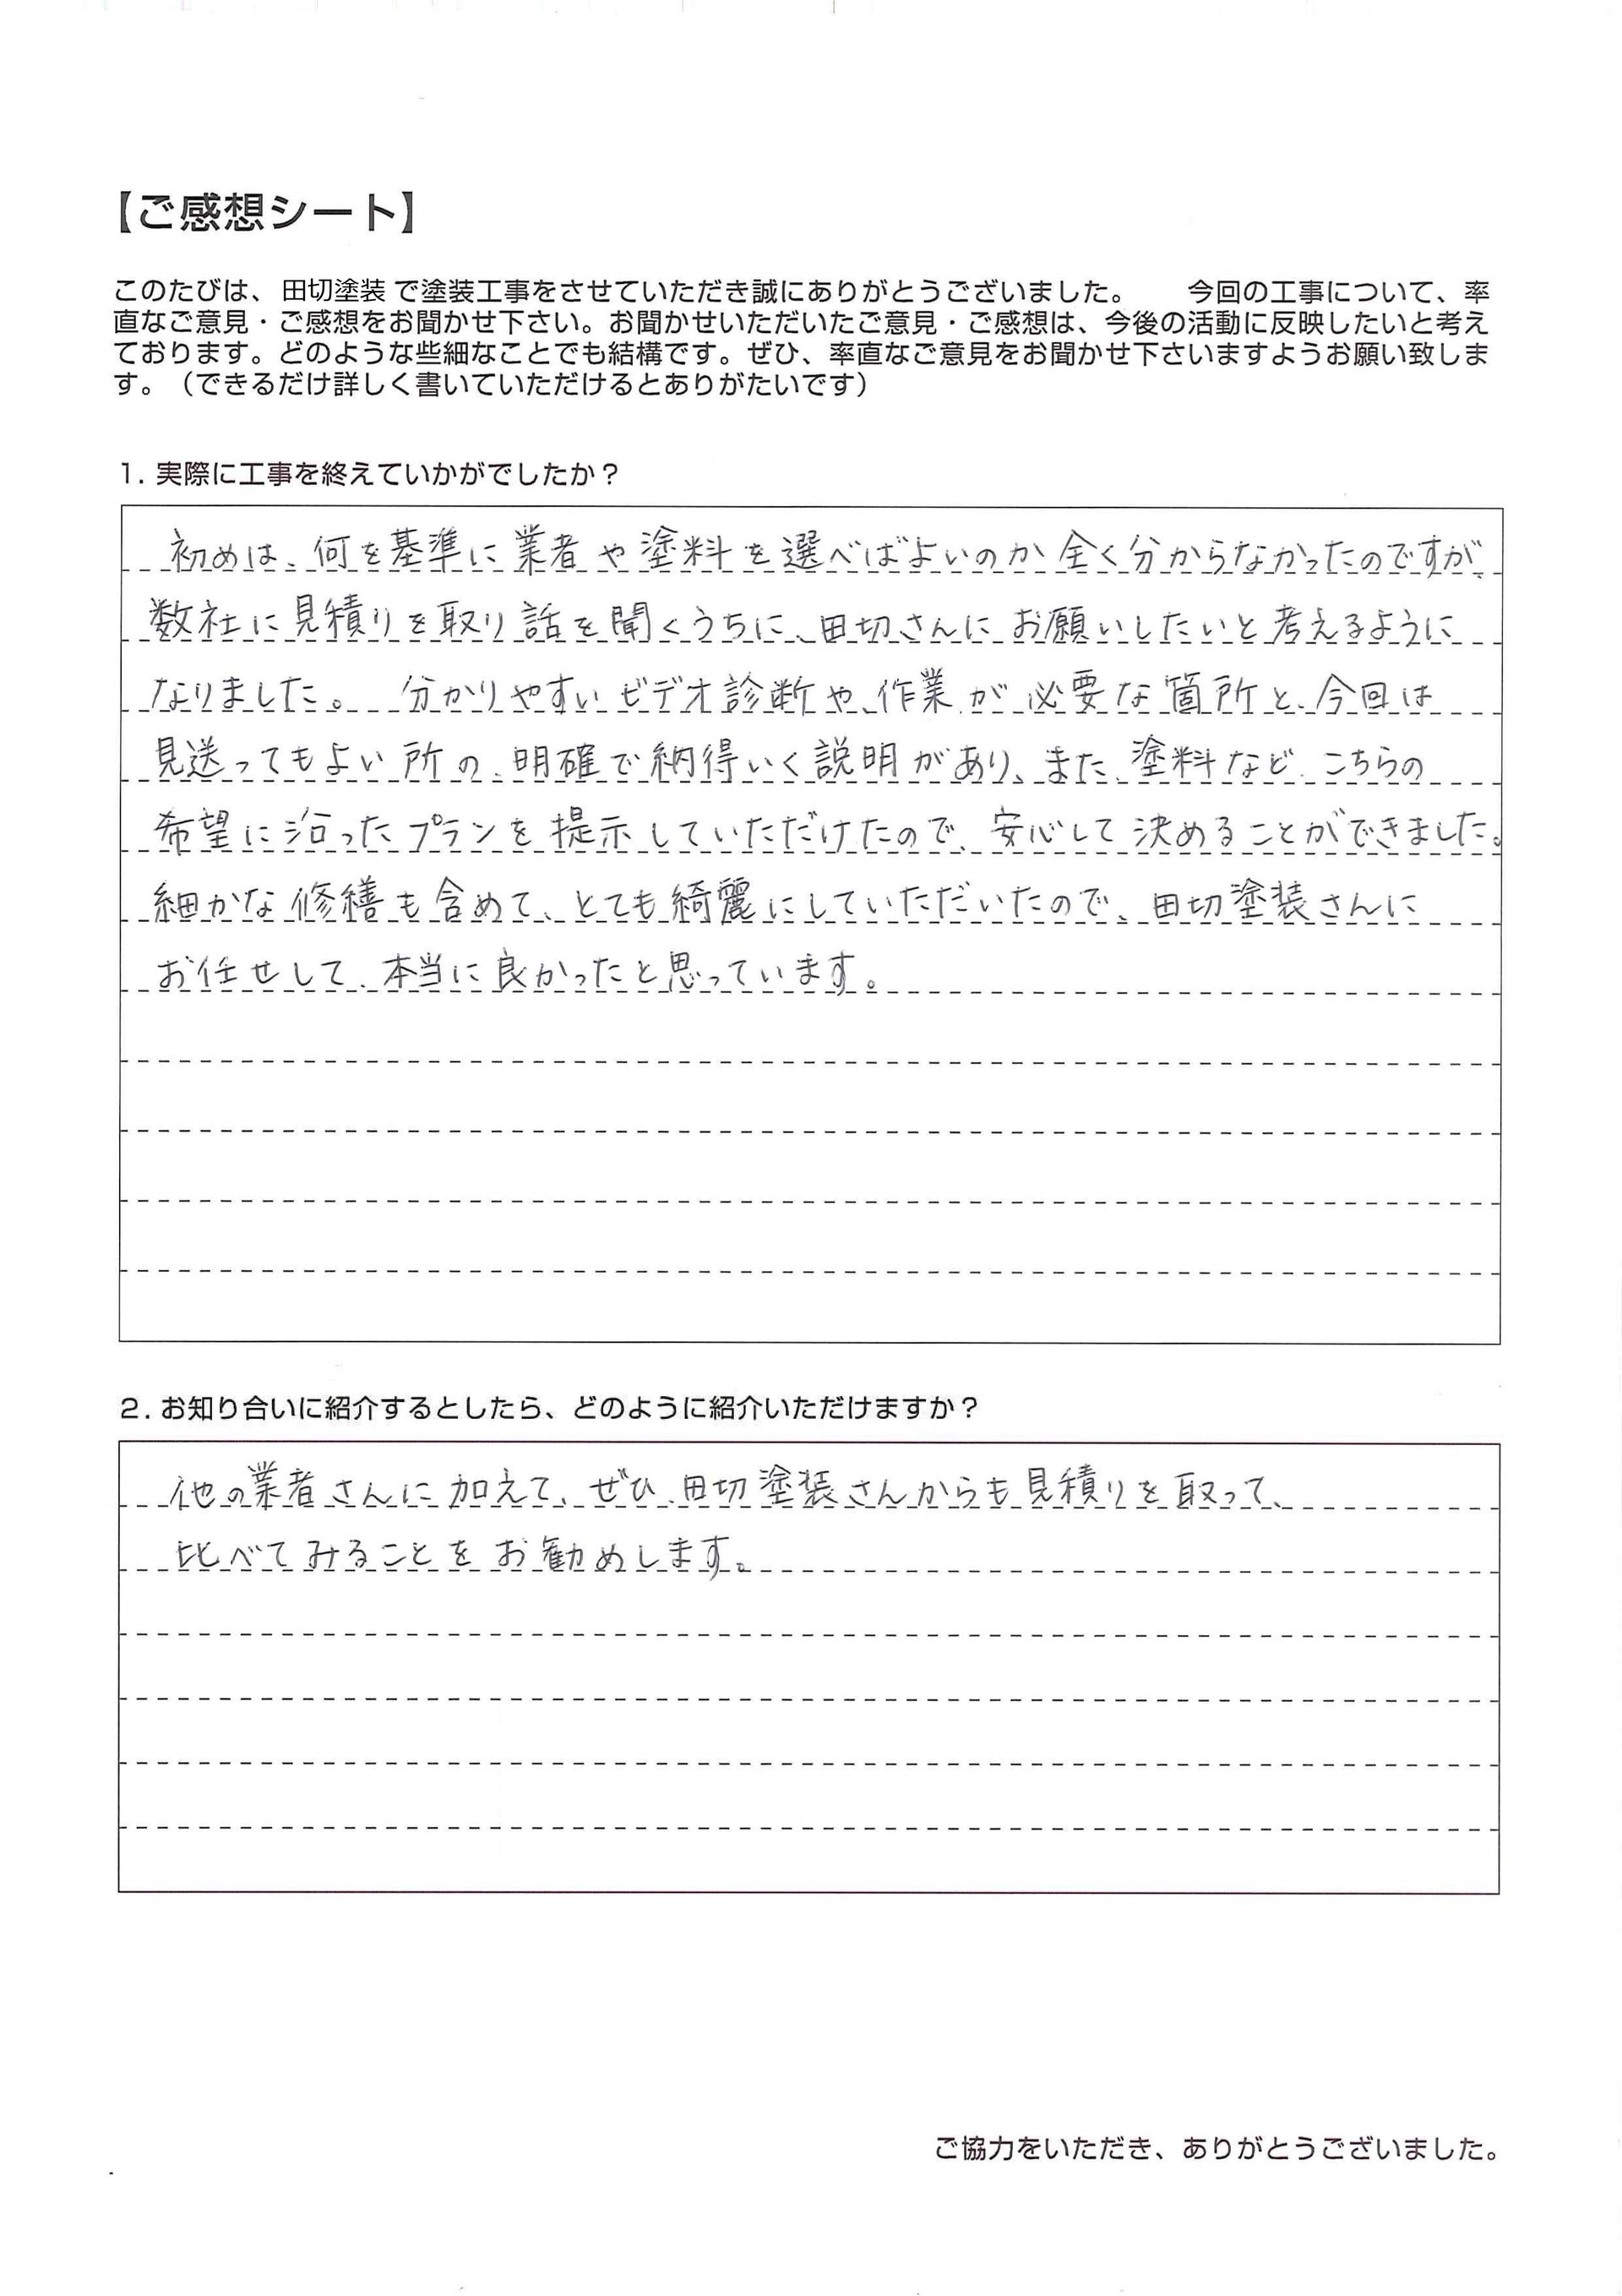 【ご感想シート】
このたびは、田切塗装で塗装工事をさせていただき誠にありがとうございました。　　今回の工事について、率
直なご意見・ご感想をお聞かせ下さい。お聞かせいただいたご意見・ご感想は、今後の活動に反映したいと考え
ております。どのような些細なことでも結構です。ぜひ、率直なご意見をお聞かせ下さいますようお願い致しま
す。（できるだけ詳しく書いていただけるとありがたいです）
1. 実際に工事を終えていかがでしたか？
初めは、何を基準に業者や塗料を選べばよいのか全く分からなかったのですが、
数社に見積りを取り話を聞くうちに、田切さんにお願いしたいと考えるように
なりました。分かりやすいビデオ診断や、作業が必要な箇所と、今回は
見送ってもよい所の、明確で納得いく説明があり、また、塗料など、こちらの
希望に沿ったプランを提示していただけたので、安心して決めることができました。
細かな修繕も含めて、とても綺麗にしていただいたので、田切塗装さんに
お任せして、本当に良かったと思っています。
2. お知り合いに紹介するとしたら、どのように紹介いただけますか？
他の業者さんに加えて、ぜひ、田切塗装さんからも見積りを取って、
比べてみることをお勧めします。
ご協力をいただき、ありがとうございました。